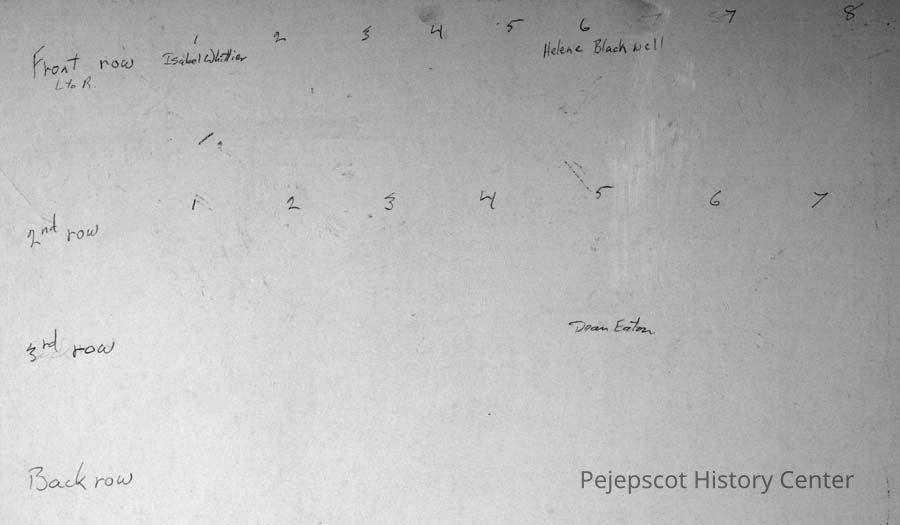 1 2 3 4 5 6 7 8
Front row Isabel Whittier Helene Blackwell
L to R
1 2 3 4 5 6 7
2nd row
Dean Eaton
3rd row
Back row
Pejepscot History Center